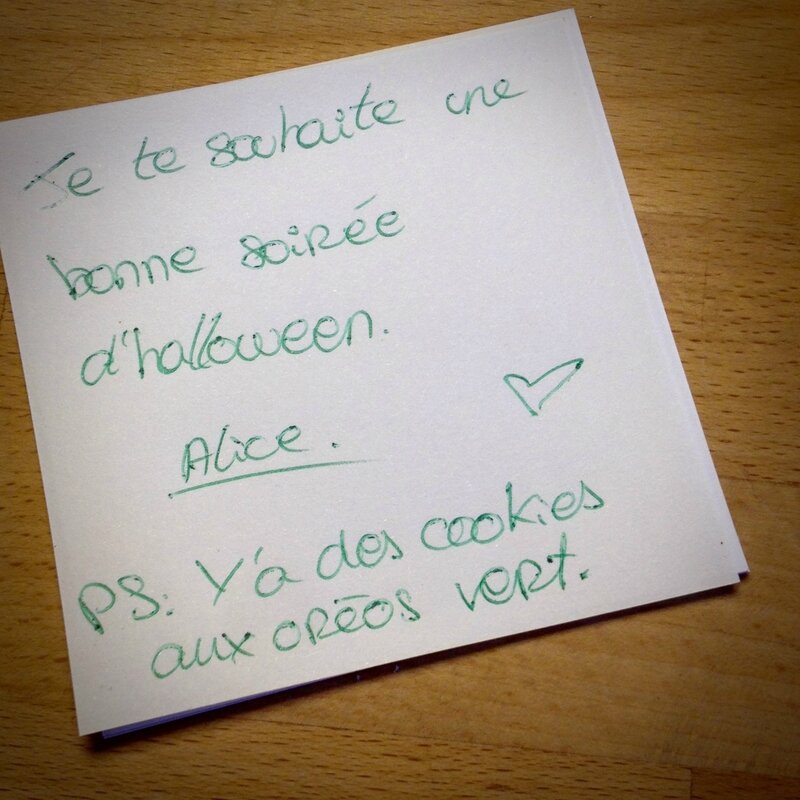 Je te souhaite une
bonne soirée
d'halloween.
Alice.
PS: Y'a des cookies
aux oréos vert.